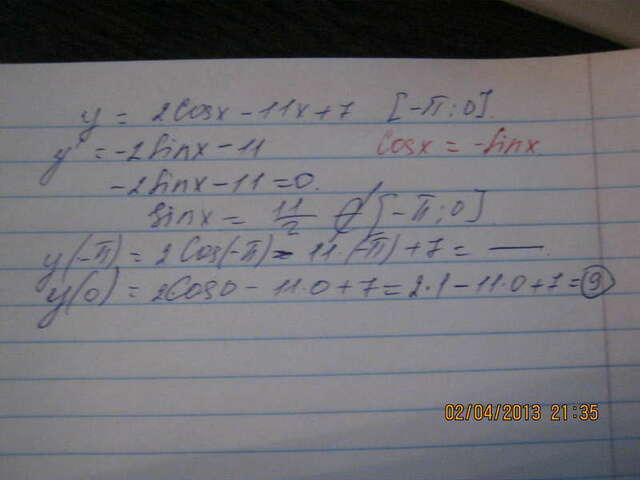 y = 2Cosx - 11x + 7 [-π; 0].
y' = -2Sinx - 11 Cosx = -Sinx.
-2Sinx - 11 = 0.
Sinx = 11/2 ∉ [-π; 0]
y(-π) = 2Cos(-π) - 11·(-π) + 7 = —.
y(0) = 2Cos0 - 11·0 + 7 = 2·1 - 11·0 + 7 = 9
02/04/2013 21:35